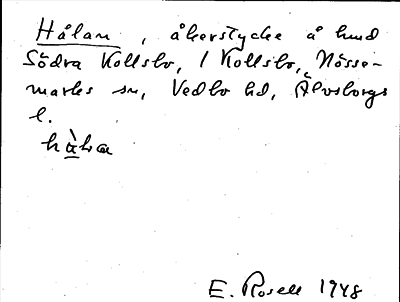 Hålan, åkerstycke å hmd
Södra Kollsbo, 1 Kollsbo, Nösse-
marks sn, Vedbo hd, Älvsborgs
l.
hå̀ha
E. Rosell 1948